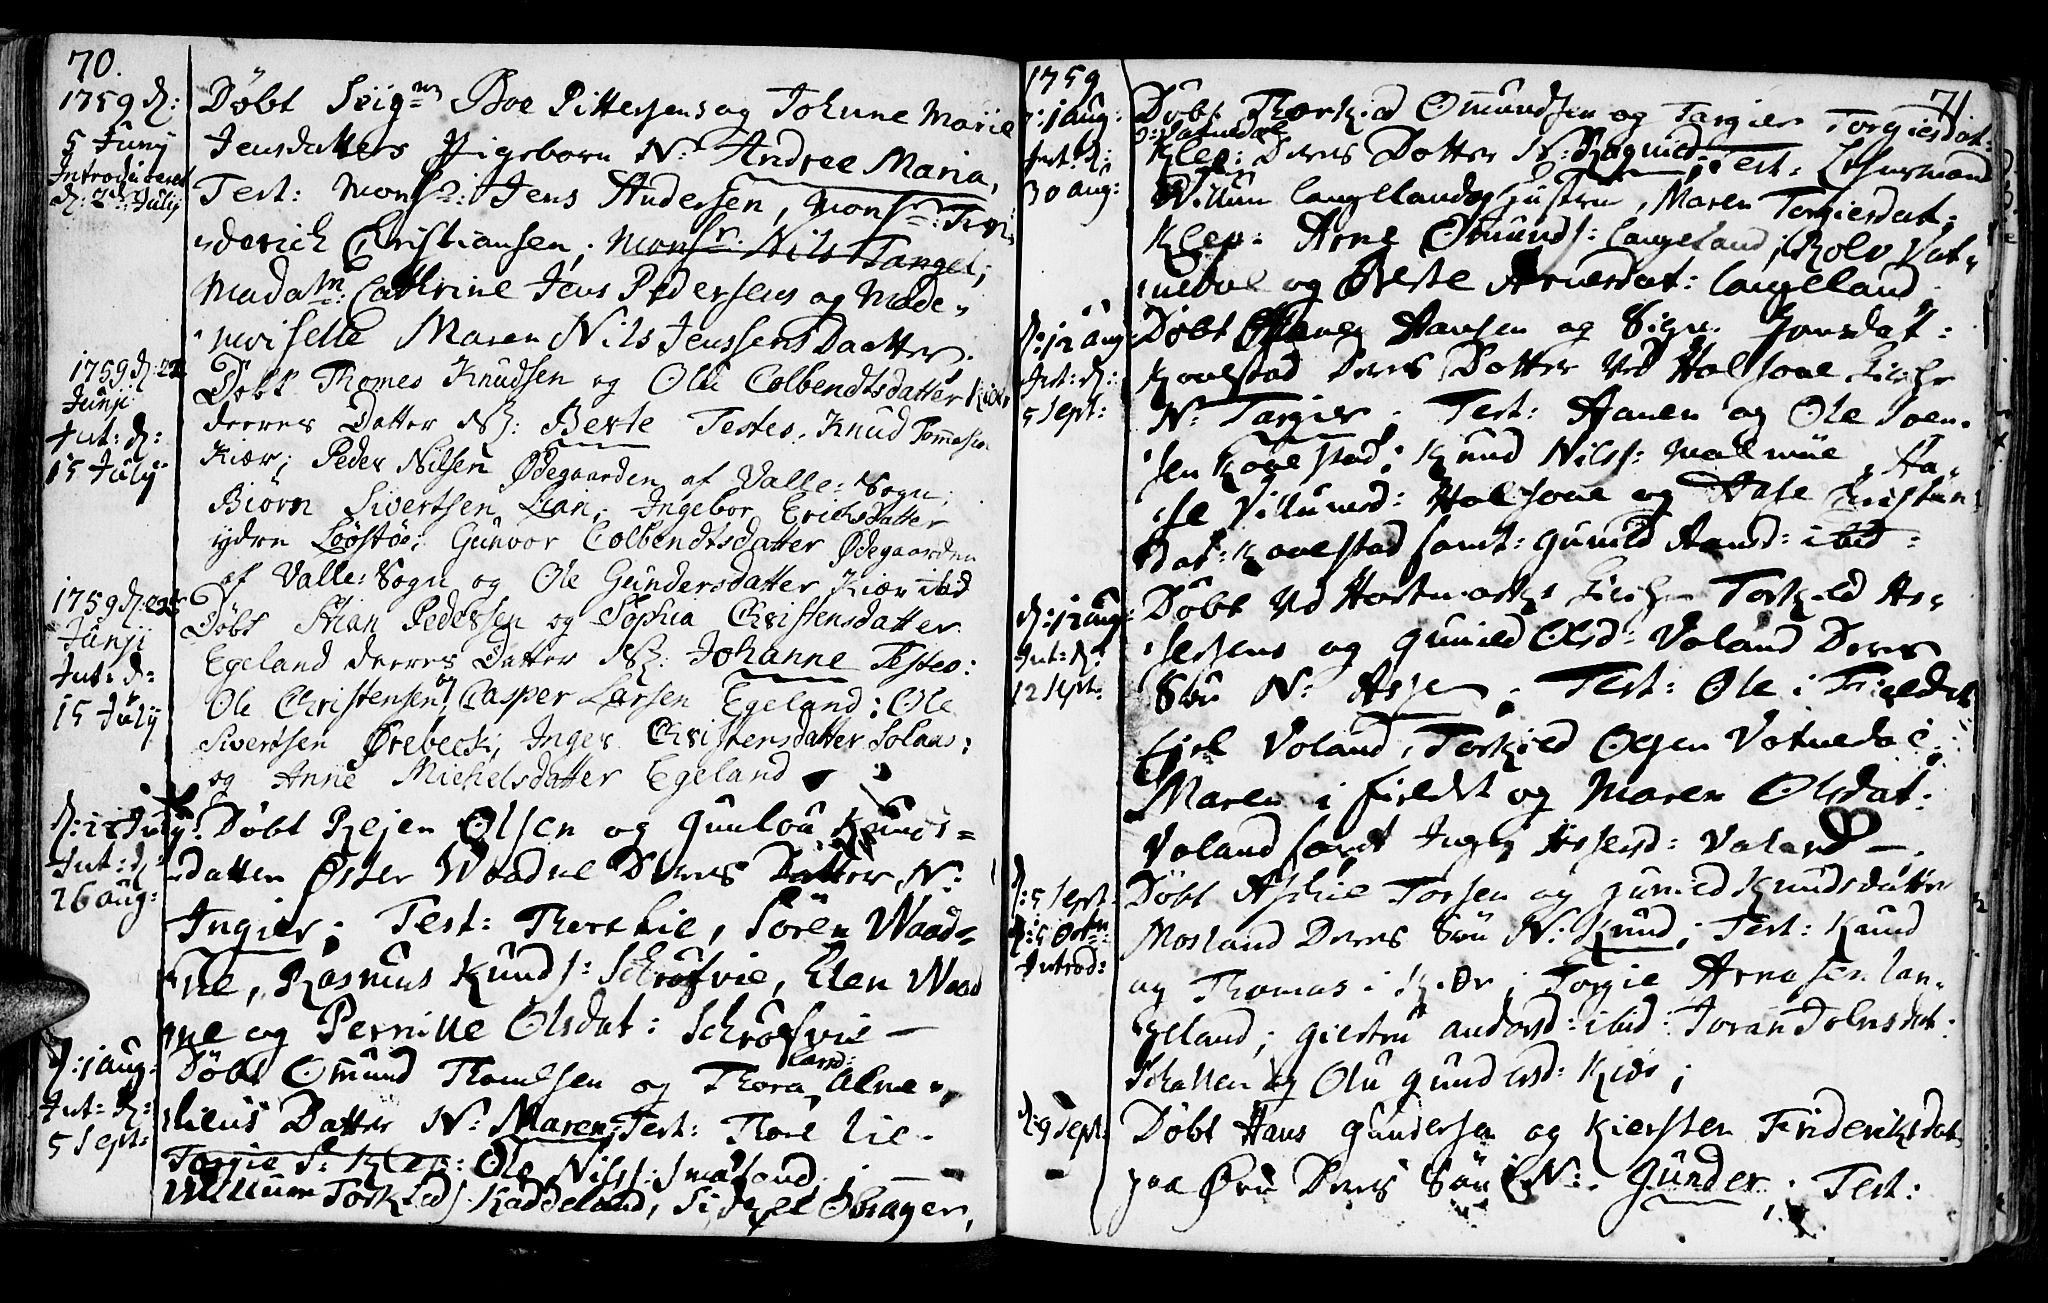 70.
1759 d:
5 Junÿ
Introduceret
d: 2d: Julÿ
Døbt Seigr Boe Pittersens og Johnne Marie
Jensdatters Pigebarn N: Andree Maria,
Test: Monsr: Jens Andersen, Monsr: Fre-
derich Christiansen, Monsr. Nils Tangel,
Madam: Cathrine Jens Pedersens og Made-
moiselle Maren Nils Jenssens Daatter.
1759 d: 22
Junji
Int: d:
15 Julÿ
Døbt Thomes Knudsen og Ole Colbendtsdatter Kiær
deeres Datter N: Berte Testes. Knud Tommesen
Kiær; Peder Nilsen Ødegaarden af Valle: Sogn;
Biørn Sivertsen Lian; Ingebor Erichsdatter
ÿdre Løøstøe; Gunvor Colbendtsdatter Ødegaarden
af Valle: Sogn og Ole Gundersdatter Kiær ibid
1759 d: 22
Junji
Int: d:
15 Julÿ
Døbt Stian Pedersen og Sophia Christensdatter
Egeland deeres Datter N: Johanne Testes:
Ole Christensen og Casper Larsen Egeland; Ole
Sivertsen Ørebeck; Inger Christensdatter Solaas;
og Anne Michelsdatter Egeland
d: 28 Julÿ:
Int: d:
26 aug:
Døbt Rejer Olsen og Gunlou Knuds=
datten Øster Waadne Deres Datter N:
Ingier; Test: Søren Waad=
ne, Rasmus Knuds: Schrøfvie, Elen Waad
ne og Pernille Olsdat: Schrøfvie —
d: 1 aug:
Int: d:
5 Sept:
Døbt Omund Thomesen og Thora
Datter N: Maren; Test:
Torgie S: Klep: Ole Nilss: Smaaland
Willum Torkilds: Kaddeland, Sidzel Brager,
71
1759
1 aug:
Int: d:
30 aug:
Døbt Torkild Omundsen og Targier Torgiesdat:
Klep: Deres Dotter N: Ragnild; Test: Lehnsmand
Willum Langelands Hustrue, Maren Torgiersdat:
Klep: Arne Omunds: Langeland, Rolv Vat-
nedal og Berte Arnesdat: Langeland
d: 12 aug
Int: d:
5 Sept:
Døbt Hansen og Signe Jonsdat:
Kovestad Deres Dotter ved Halsaae Kirche
N: Targier. Test: Aanen og Ole Soen-
sen Kovestad; Knud Nilss: Malmüe, Aa-
se Villumsd: Halsaae og Aase Kristen
dat: Kovestad samt: Gunild Aansd: ibid:
d: 12 aug:
Int: d:
12 Sept:
Døbt ved Hartmarks Kirche Torkild As-
sersens og Gunild Olsd: Voland Deres
Søn N: Asser. Test: Ole i Fieldet
Voland, Torkild Olsen Vatnedal;
Maren i Fieldet og Maren Olsdat:
Voland samt Assersd: Voland —.
d: 5 Sept:
d: 5 Octr:
Introd:
Døbt Torsen og Gunild Knudsdatter
Mosland Deres Søn N: Knud; Test: Knud
og Thomas i Kiær; Torgie Arnesen Lan-
geland; Giertru Andersd: ibid: Joran Tolnsdat:
Schallen og Olu Gundersd: Kiær;
d: 9 Sept:
Døbt Hans Gundersen og Kiersten Friderichsdat
paa Øen Deres Søn N: Gunder; Test: